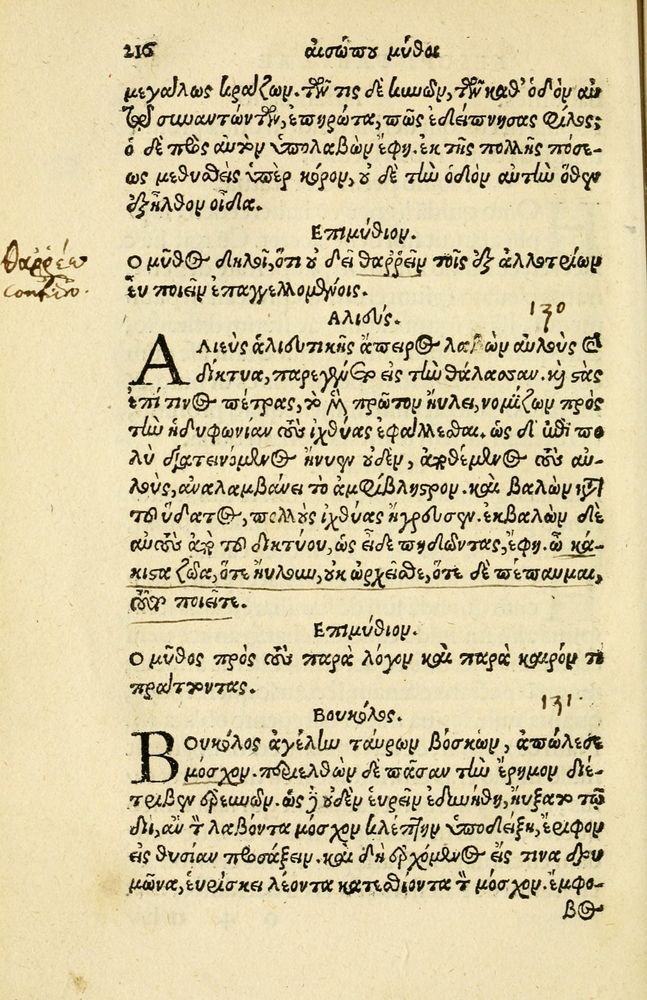 216 αἰσώπου μῦθοι
μεγάλως κράζων. τῶν τις δὲ κυνῶν, τῶν καθ' ὁδὸν αὐ
τῷ συναντώντων, ἐπηρώτα, πῶς ἐδείπνησας φίλος;
ὁ δὲ πρὸς αὐτὸν ὑπολαβὼν ἔφη. ἐκ τῆς πολλῆς πόσε-
ως μεθυσθεὶς ὑπὲρ κόρον, οὐδὲ τὴν ὁδὸν αὐτὴν ὅθεν
ἐξῆλθον οἶδα.
Επιμύθιον.
Ο μῦθος δηλοῖ, ὅτι οὐ δεῖ θαῤῥεῖν τοῖς ἐξ ἀλλοτρίων
εὖ ποιεῖν ἐπαγγελλομένοις.
θαῤῥέω
Αλιεύς. 130
Αλιεὺς ἁλιευτικῆς ἄπειρος λαβὼν αὐλοὺς καὶ
δίκτυα, παρεγένετο εἰς τὴν θάλασσαν. καὶ στὰς
ἐπί τινος πέτρας, τὸ μὲν πρῶτον ηὔλει, νομίζων πρὸς
τὴν ἡδυφωνίαν τοὺς ἰχθύας ἐφάλλεσθαι. ὡς δ' ἐπὶ πο
λὺ διατεινόμενος ἤνυεν οὐδὲν, ἀποθέμενος τοὺς αὐ-
λοὺς, ἀναλαμβάνει τὸ ἀμφίβληστρον. καὶ βαλὼν κατὰ
τοῦ ὕδατος, πολλοὺς ἰχθύας ἤγρευσεν. ἐκβαλὼν δὲ
αὐτοὺς ἀπὸ τοῦ δικτύου, ὡς εἶδε πηδῶντας, ἔφη. ὦ κά-
κιστα ζῶα, ὅτε ηὔλουν, οὐκ ὠρχεῖσθε, ὅτε δὲ πέπαυμαι,
τοῦτο ποιεῖτε.
Επιμύθιον.
Ο μῦθος πρὸς τοὺς παρὰ λόγον καὶ παρὰ καιρόν τι
πράττοντας.
Βουκόλος. 131.
Βουκόλος ἀγέλην ταύρων βόσκων, ἀπώλεσε
μόσχον. περιελθὼν δὲ πᾶσαν τὴν ἔρημον διέ-
τριβεν ἐρευνῶν. ὡς δ' οὐδὲν εὑρεῖν ἐδυνήθη, ηὔξατο τῷ
διί, ἂν τὸν λαβόντα μόσχον κλέπτην ὑποδείξῃ, ἔριφον
εἰς θυσίαν προσάξειν. καὶ δὴ ἐρχόμενος εἴς τινα δρυ
μῶνα, εὑρίσκει λέοντα κατεσθίοντα τὸν μόσχον. ἔμφο-
βος